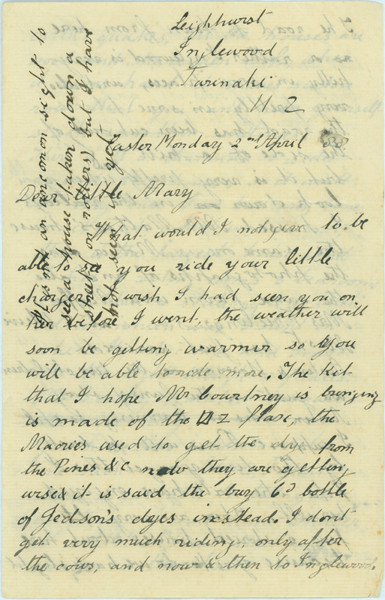 Leighhurst
Inglewood
Tarinaki
N Z
Easter Monday 2nd April 88
Dear little Mary
What would I not give to be
able to see you ride your little
charger. I wish I had seen you on
her before I went, the weather will
soon be getting warmer so you
will be able to ride more. The Ket
that I hope Mr Courtney is bringing
is made of the N Z flax, the
Maories used to get the dye from
the Pines &c now they are getting
wise & it is said the buy 6d bottle
of Jedson's dyes instead. I don't
get very much riding, only after
the cows, and now & then to Inglewood.
It is not an uncommon sight to
see a house taken down a
street (on rollers) but I have
not seen it yet